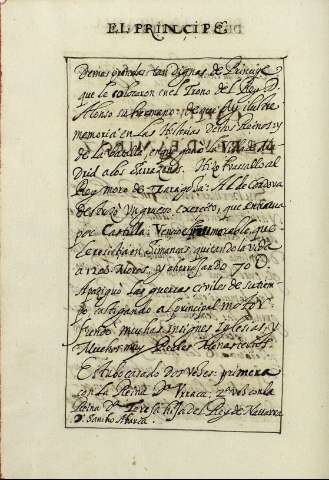 EL PRINCIPE
Demas prendas tan dignas de Principe
que le colocaron en el Trono del Rey D.
Alonso su hermano: de que ay ilustre
memoria en las Historias destos Reinos: y
de la batalla, en que ganó la villa de Ma
drid a los Sarracenos. Hizo bassallo al
Rey moro de Zaragoza: Al de Cordova
desbarató un grueso exercito, que entraua
por Castilla: Vencio memorable, que
le resistia en Simancas, quitando la vida
a moros, y apresando 70 D.
Apaziguó las guerras civiles de su tiem
po castigando al principal motor.
Fundó muchas insignes Iglesias, y
Muchos muy Nobles Monasterios.
Estubo casado dos veses: primera
con la Reina Dª Vrraca; 2ª ves con la
Reina Dª Teresa hija del Rey de Navarra
D. Sancho Abarca.